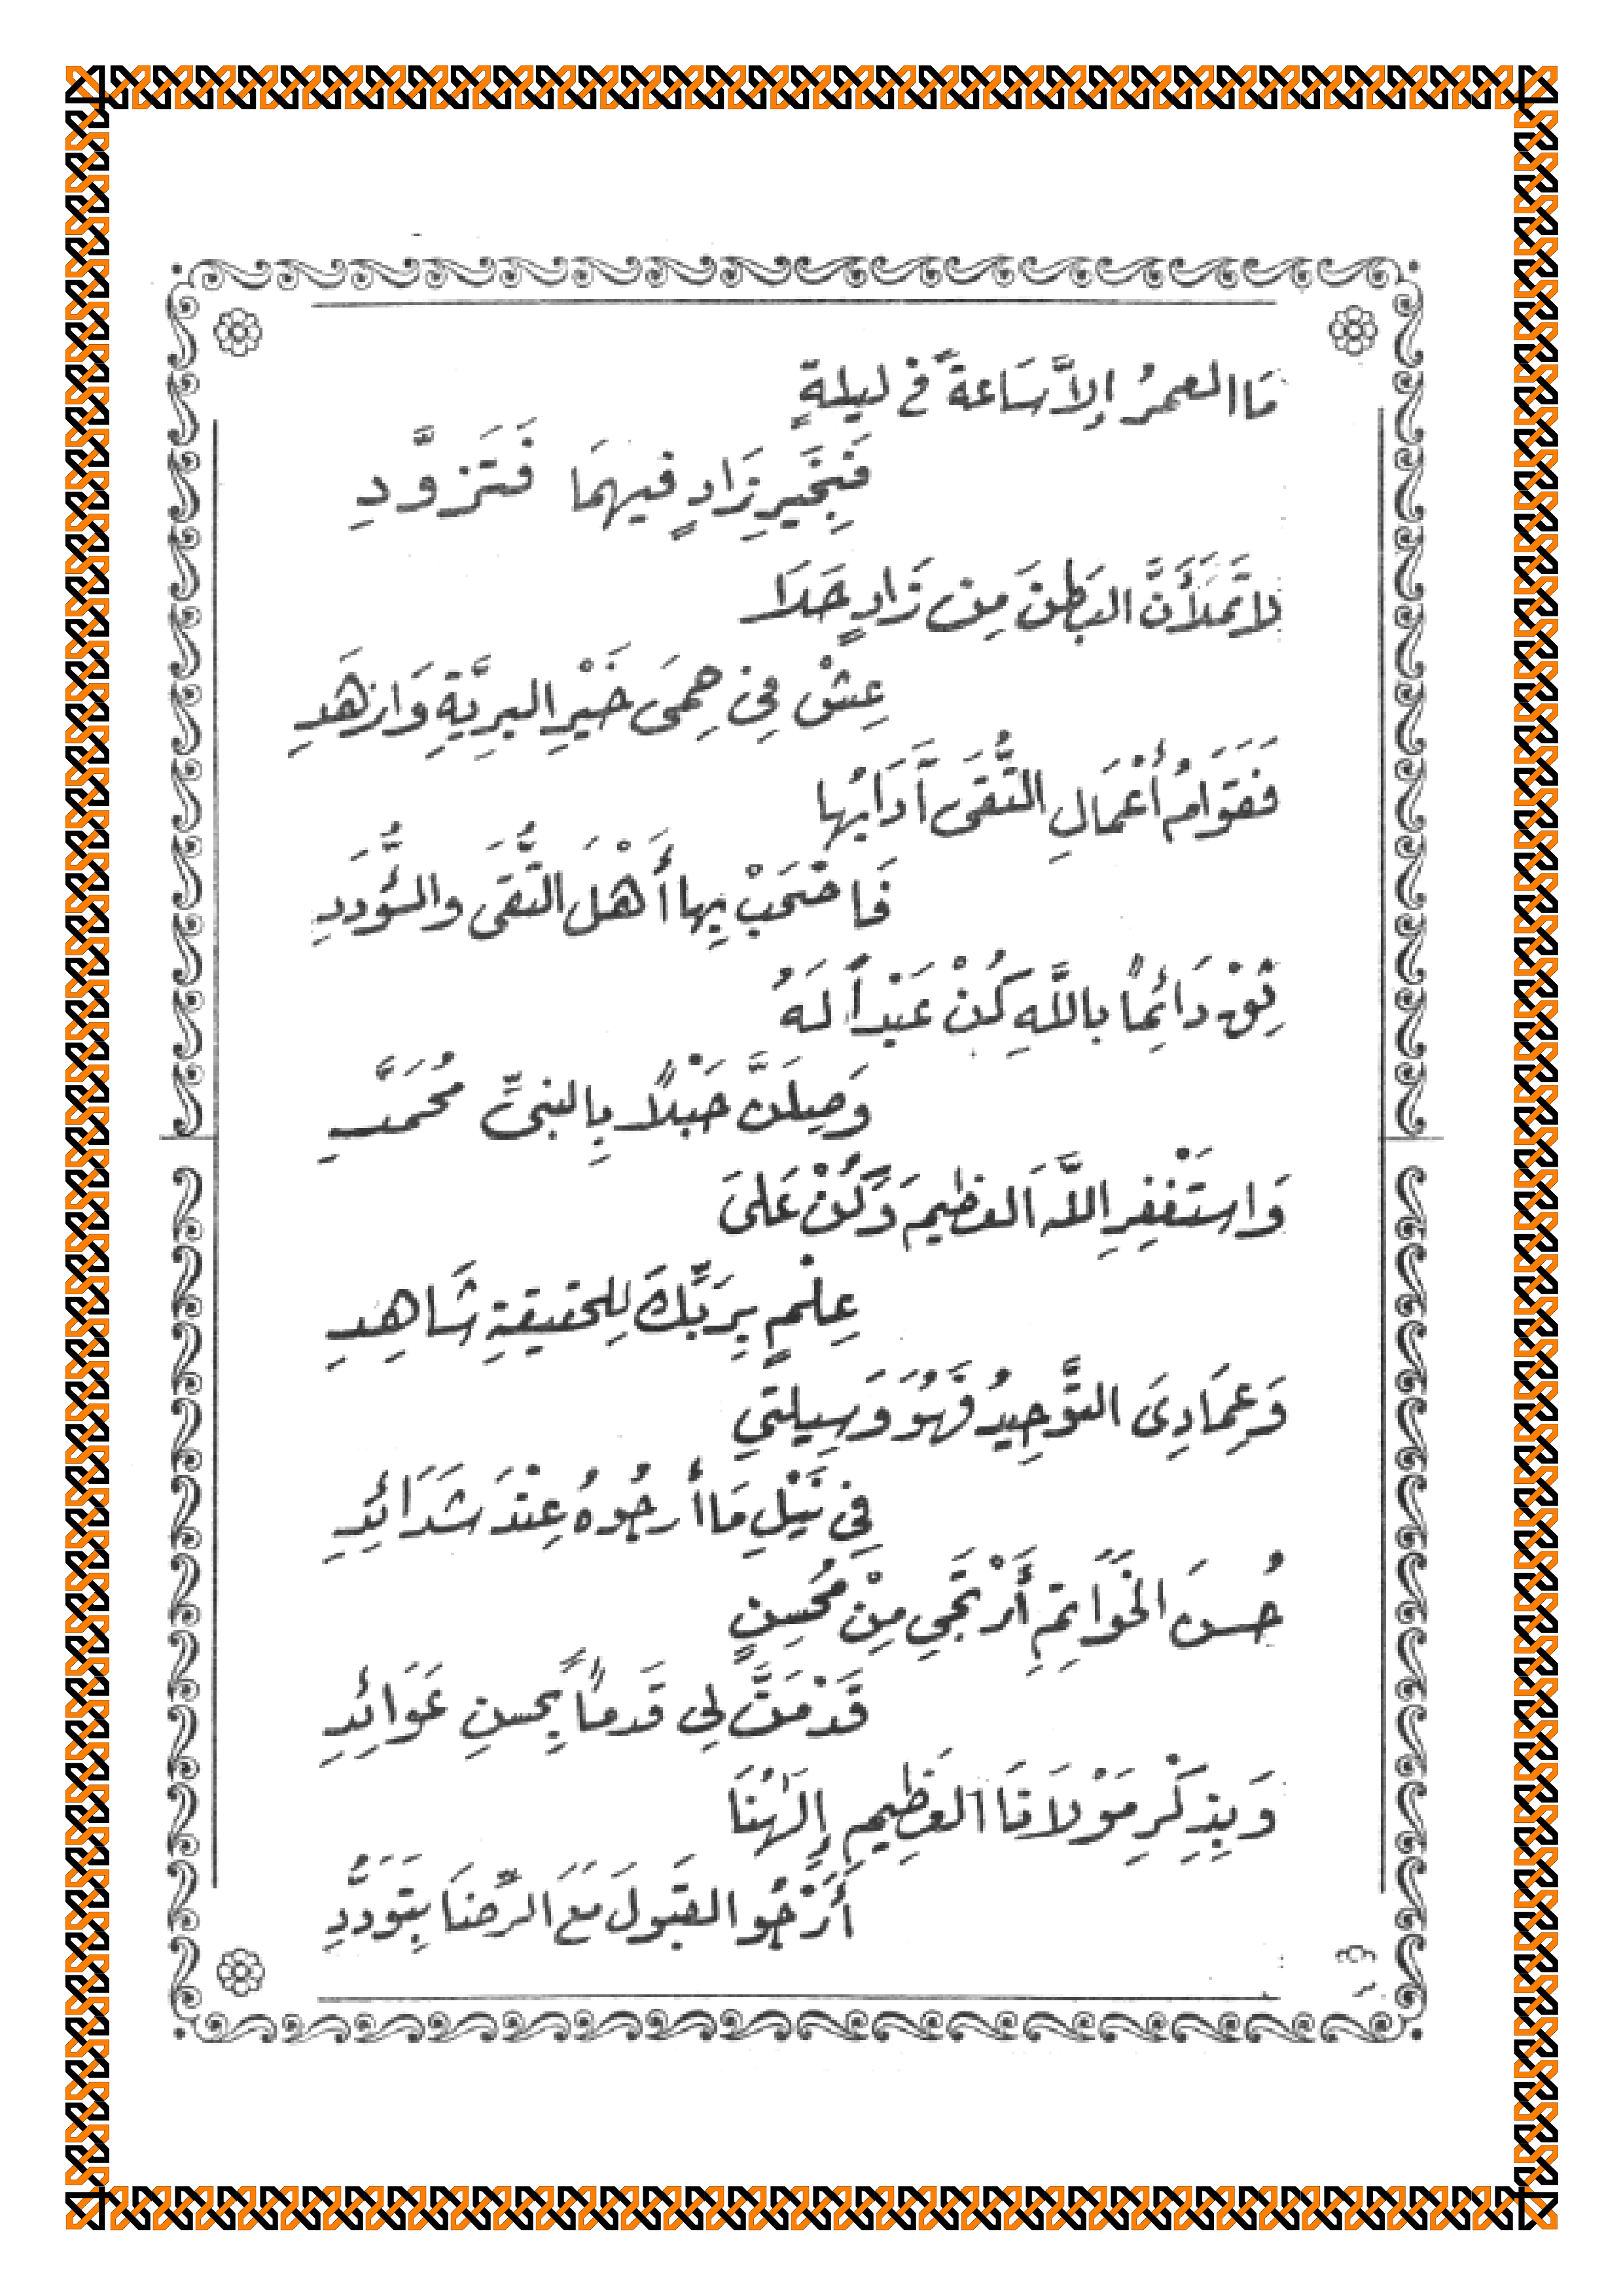 مَا العمرُ إلاَّ سَاعةً فى ليلةٍ
فَبِخَيرِ زَادٍ فيهمَا فَتَزوَّدِ
لا تَملَأَنَّ البَطنَ مِن زَادٍ حَلَا
عِشْ فِى حِمَى خَيْرِ البرِيَّةِ وَازهَدِ
فَقَوَامُ أَعْمَالِ التُّقَى آدَابُها
فَاصْحَبْ بِها أَهْلَ التُّقَى والسُّؤدَدِ
ثِقْ دَائِماً باللَّهِ كُنْ عَبْداً لَهُ
وَصِلَنَّ حَبْلاً بِالنبىِّ مُحَمَّدِ
وَاستَغْفِرِ اللَّهَ العظيمَ وَكُنْ عَلىَ
عِلْمٍ بِرَبِّكَ لِلحقيقةِ شَاهِدِ
وَعِمَادِىَ التَّوحِيدُ فَهُوَ وَسِيلتي
فِي نَيْلِ مَا أَرجُوهُ عِنْدَ شَدَائِدِ
حُسنَ الخَوَاتِمِ أَرْتَجِي مِنْ مُحْسِنٍ
قَدْ مَنَّ لِى قَدماً بِحُسنِ عَوَائِدِ
وَبِذِكْرِ مَوْلَانَا العَظِيمِ إِلَهُنَا
أَرْجُو القبَولَ مَعَ الرِّضَا بِتَوَدُّدِ